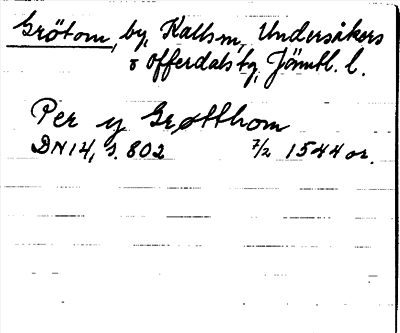 Grötom, by, Kallsn, Undersåkers
o Offerdals tg, Jämtl. l.
Per y Grøtthom
DN14, s. 802 7/2 1544 or.